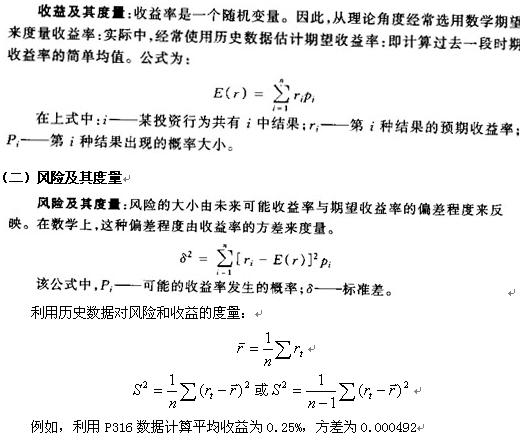 收益及其度量:收益率是一个随机变量。因此,从理论角度经常选用数学期望
来度量收益率:实际中,经常使用历史数据估计期望收益率:即计算过去一段时期
收益率的简单均值。公式为:
E(r) = ∑_{i=1}^{n} r_i p_i
在上式中:i——某投资行为共有 i 中结果;r_i——第 i 种结果的预期收益率;
P_i——第 i 种结果出现的概率大小。
(二)风险及其度量↵
风险及其度量:风险的大小由未来可能收益率与期望收益率的偏差程度来反
映。在数学上,这种偏差程度由收益率的方差来度量。
δ² = ∑_{i=1}^{n} [r_i − E(r)]² p_i
该公式中,P_i——可能的收益率发生的概率;δ——标准差。 ↵
利用历史数据对风险和收益的度量:↵
r̄ = 1/n ∑ r_t ↵
S² = 1/n ∑ (r_t − r̄)² 或 S² = 1/(n−1) ∑ (r_t − r̄)² ↵
例如,利用 P316 数据计算平均收益为 0.25%,方差为 0.000492↵